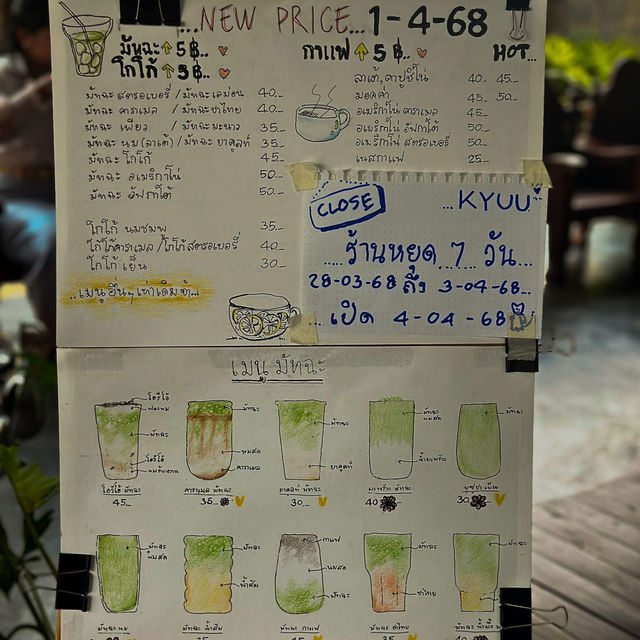 ...NEW PRICE... 1-4-68
มัทฉะ ↑ 5 ฿..
โกโก้ ↑ 5 ฿..
มัทฉะ สตรอเบอรี่ / มัทฉะ เลม่อน 40.-
มัทฉะ คาราเมล / มัทฉะ ชาไทย 40.-
มัทฉะ เพียว / มัทฉะ มะนาว 35.-
มัทฉะ นม (ลาเต้) / มัทฉะ ยาคูลท์ 35.-
มัทฉะ โกโก้ 45.-
มัทฉะ อเมริกาโน่ 50.-
มัทฉะ อัฟกาโต้ 50.-
โกโก้ นมชมพู 35.-
โกโก้คาราเมล / โกโก้สตรอเบอรี่ 40.-
โกโก้ เย็น 30.-
..เมนูอื่นๆ เท่าเดิมจ้า...
กาแฟ ↑ 5 ฿..
HOT...
ลาเต้, คาปูชิโน่ 40.. 45.-
มอคค่า 45.. 50.-
อเมริกาโน่ คาราเมล 45.-
อเมริกาโน่ อัฟกาโต้ 50.-
อเมริกาโน่ สตรอเบอรี่ 50.-
เนสกาแฟ 25.-
CLOSE ...KYUU
....ร้านหยุด 7 วัน...
28-03-68 ถึง 3-04-68...
... เปิด 4-04-68
เมนู มัทฉะ
โอริโอ้
ฟองนม
มัทฉะ
โอริโอ้
โอริโอ้ มัทฉะ
45.-
มัทฉะ
นมสด
คาราเมล
คาราเมล มัทฉะ
35.-
มัทฉะ
ยาคูลท์
ยาคูลท์ มัทฉะ
30.-
มัทฉะ
นมสด
น้ำมะพร้าว
มะพร้าว มัทฉะ
40
มัทฉะ
30
มัทฉะ
นมสด
มัทฉะ นม
มัทฉะ
น้ำส้ม
มัทฉะ น้ำส้ม
กาแฟ
นมสด
มัทฉะ
มัทฉะ กาแฟ
มัทฉะ
ชาไทย
มัทฉะ ชาไทย
มัทฉะ